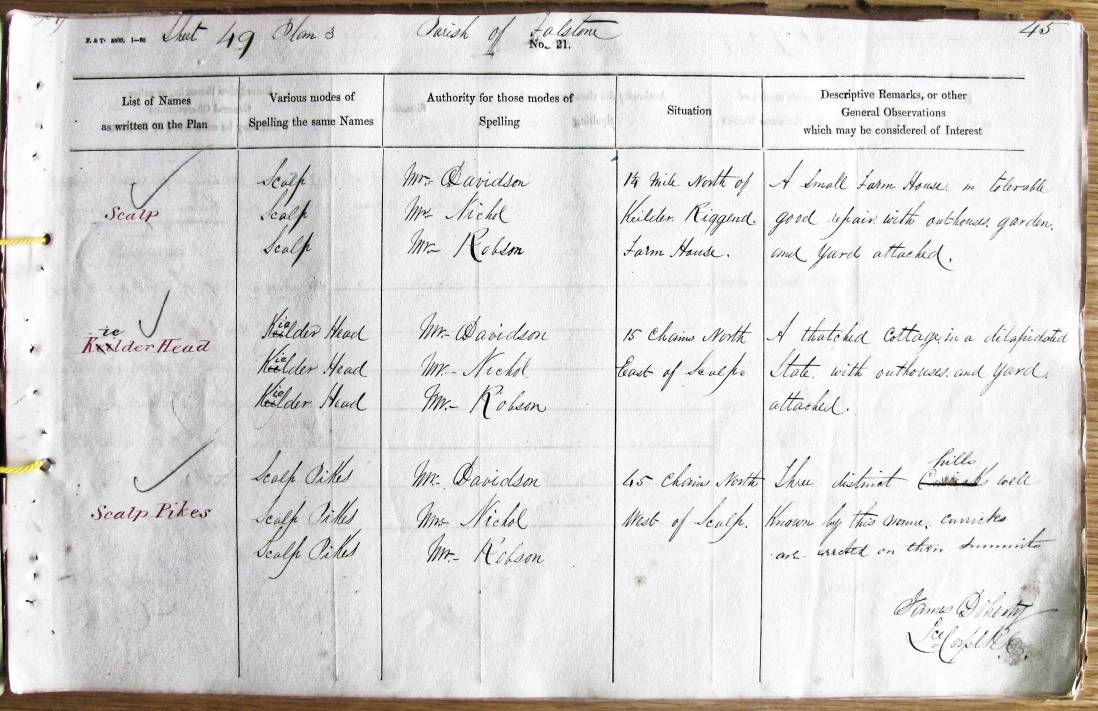 Sheet 49 Plan 3 Parish of Falstone 45
No. 21.
List of Names
as written on the Plan
Various modes of
Spelling the same Names
Authority for those modes of
Spelling
Situation
Descriptive Remarks, or other
General Observations
which may be considered of Interest
Scalp
Scalp
Scalp
Scalp
Mr. Davidson
Mr. Nichol
Mr. Robson
1¼ Mile North of
Keilder Riggend
Farm House.
A Small Farm House in tolerable
good repair with outhouses, garden,
and Yard attached.
Kielder Head
Kielder Head
Kielder Head
Kielder Head
Mr. Davidson
Mr. Nichol
Mr. Robson
15 Chains North
East of Scalp.
A thatched Cottage, in a dilapidated
State with outhouses and Yard
attached.
Scalp Pikes
Scalp Pikes
Scalp Pikes
Scalp Pikes
Mr. Davidson
Mr. Nichol
Mr. Robson
45 Chains North
West of Scalp.
Three distinct hills well
Known by this name. curricks
are erected on their summits
James Doherty